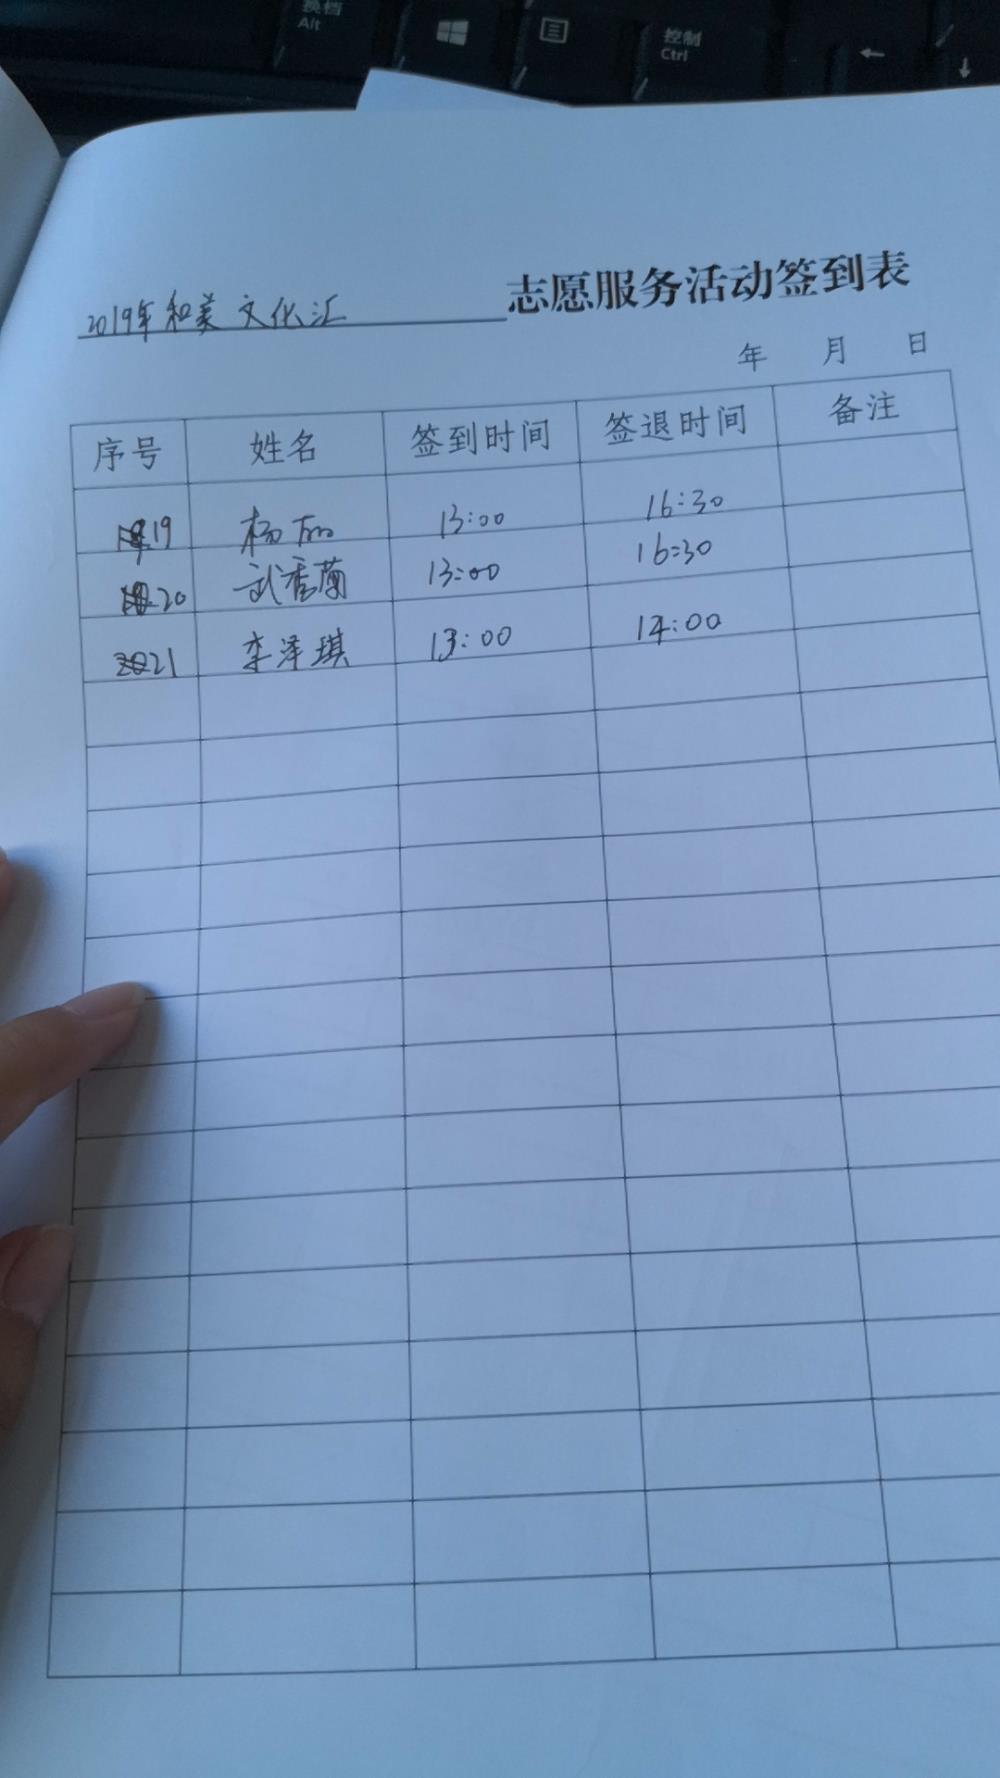 换档
Alt
控制
Ctrl
←
↓
2019年和美文化汇 志愿服务活动签到表
年 月 日
序号 姓名 签到时间 签退时间 备注
19 杨丽 13:00 16:30
20 武香兰 13:00 16:30
21 李泽琪 13:00 14:00